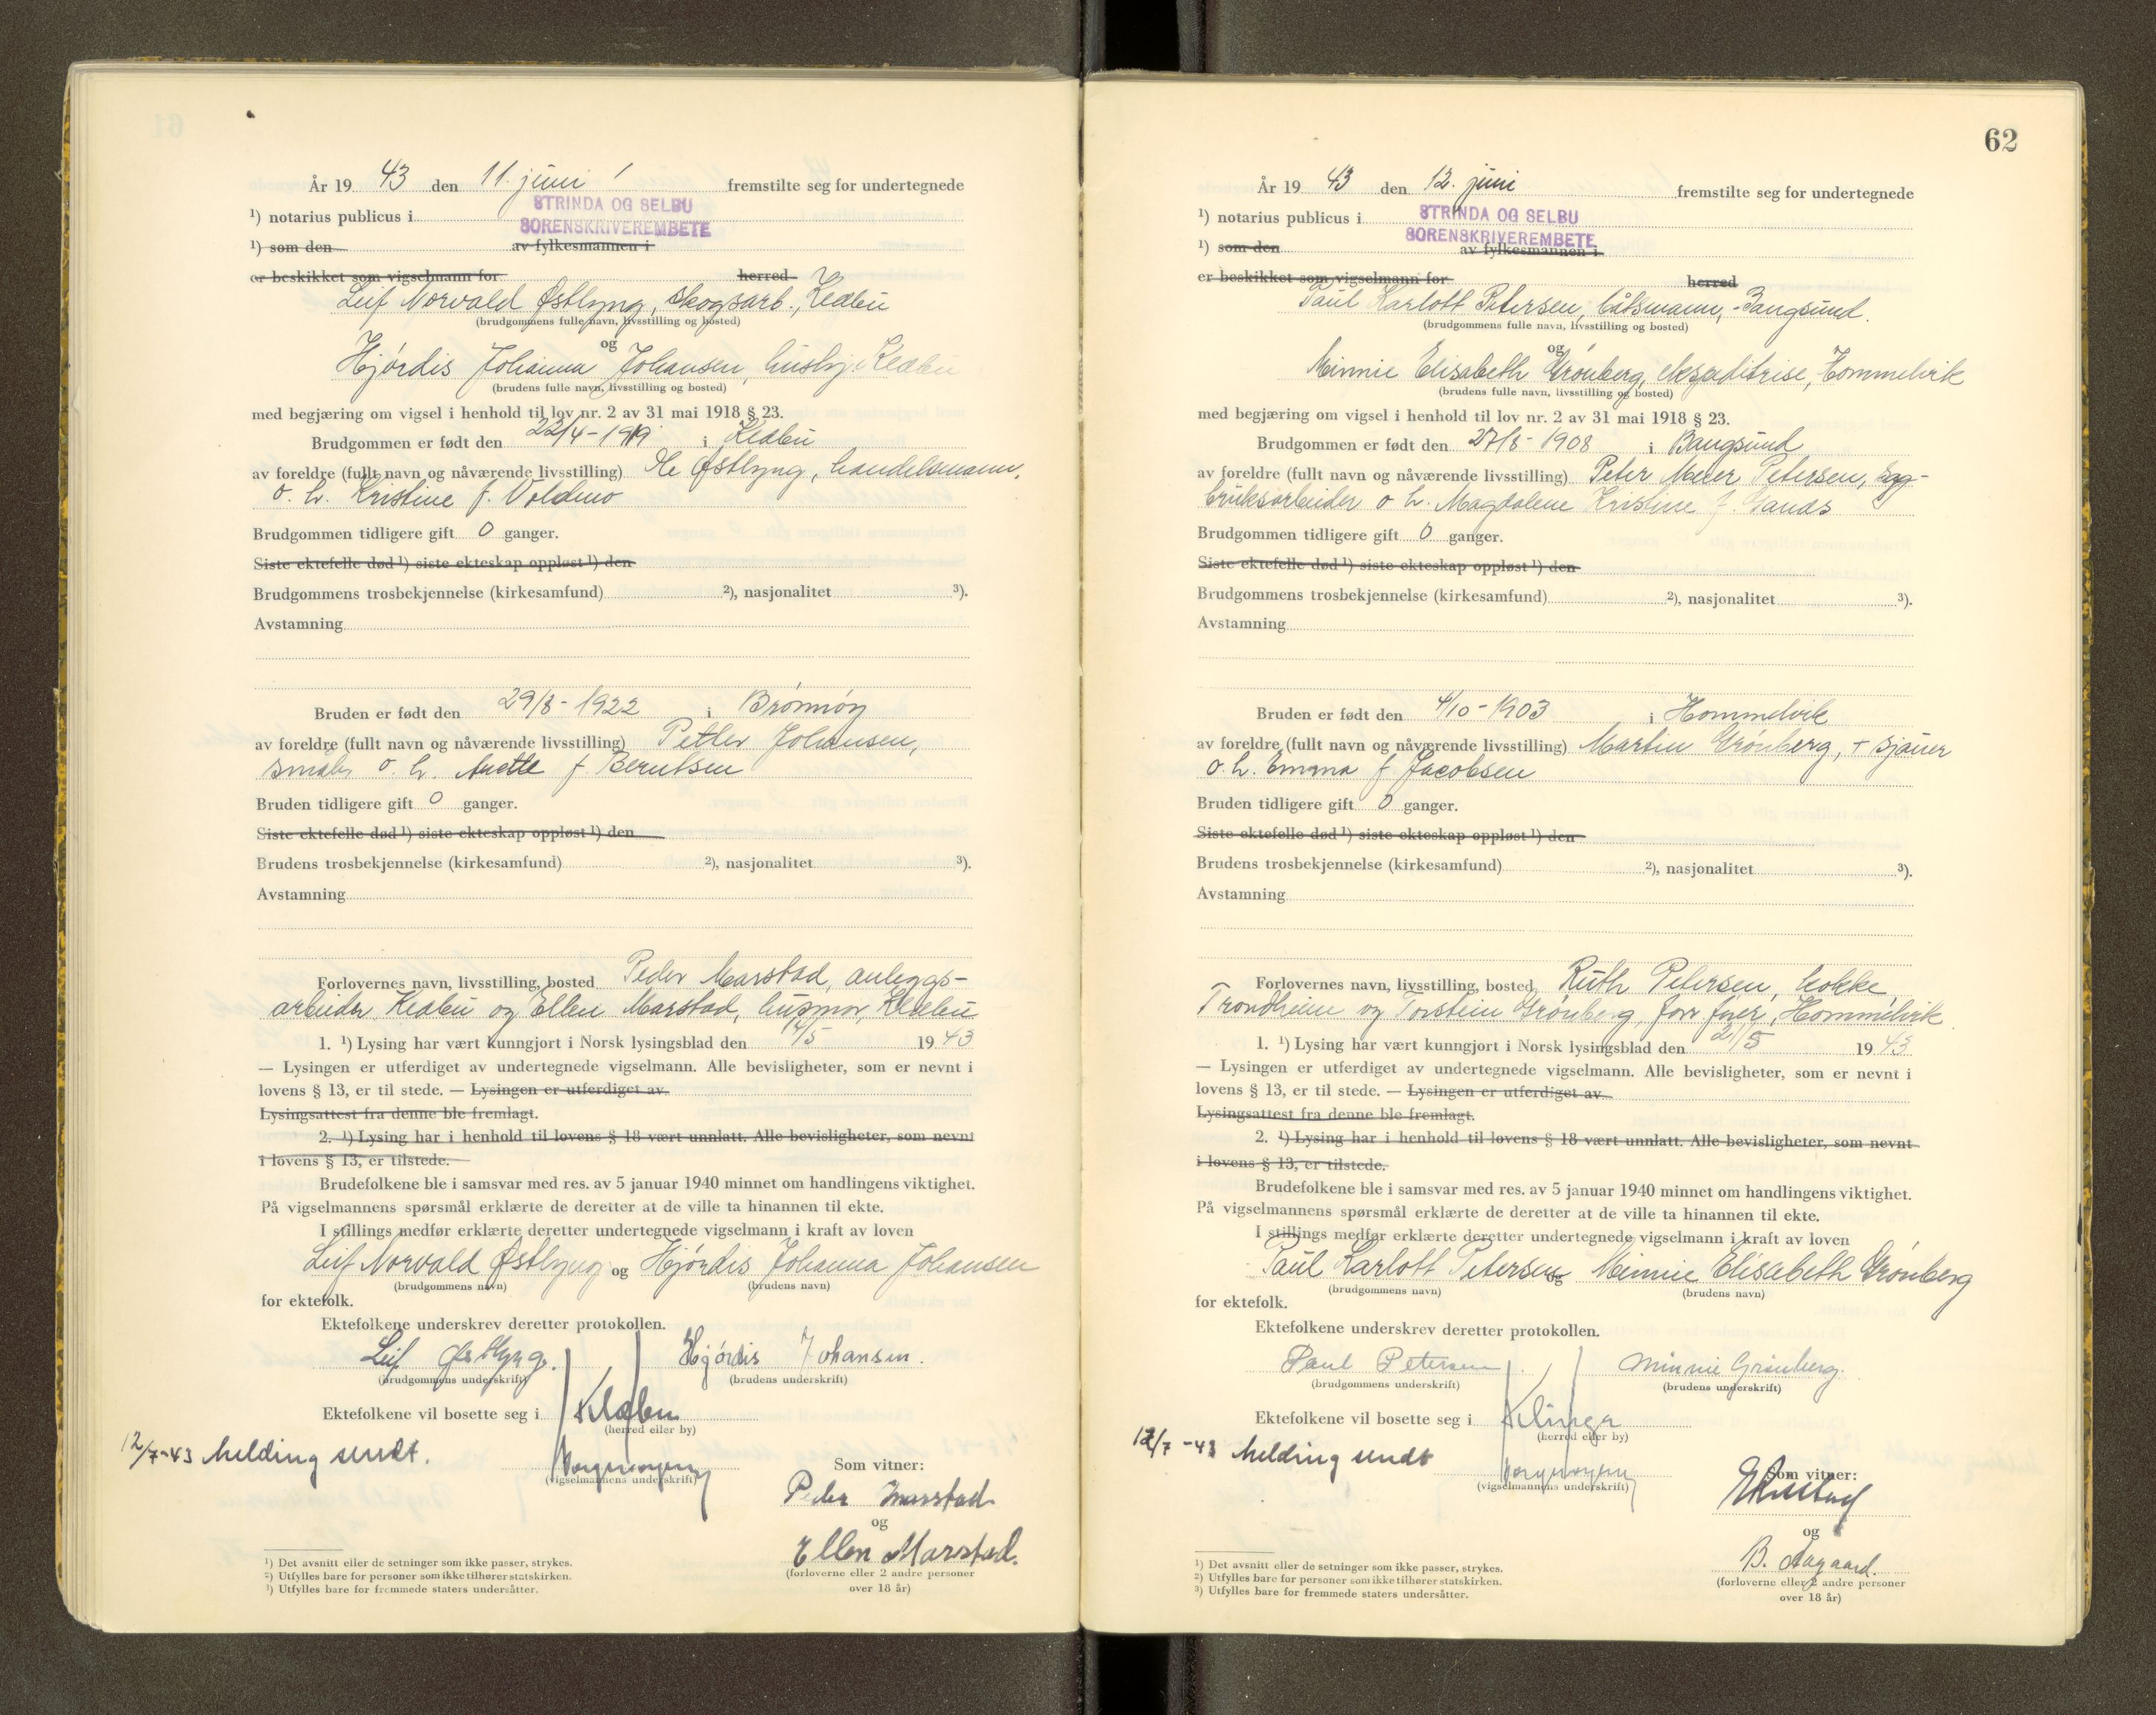 År 19 43 den 11. juni fremstilte seg for undertegnede
¹) notarius publicus i STRINDA OG SELBU
SORENSKRIVEREMBETE
¹) som den av fylkesmannen i
er beskikket som vigselmann for herred
Leif Norvald Østbyng, skogsarb., Klæbu
(brudgommens fulle navn, livsstilling og bosted)
og
Hjórdis Johanna Johansen, hushj. Klæbu
(brudens fulle navn, livsstilling og bosted)
med begjæring om vigsel i henhold til lov nr. 2 av 31 mai 1918 § 23.
Brudgommen er født den 22/4-1919 i Klæbu
av foreldre (fullt navn og nåværende livsstilling) Ole Østbyng, handelsmann,
o. h. Kristine f. Voldmo
Brudgommen tidligere gift 0 ganger.
Siste ektefelle død ¹) siste ekteskap oppløst ¹) den
Brudgommens trosbekjennelse (kirkesamfund) ²), nasjonalitet ³).
Avstamning
Bruden er født den 29/8-1922 i Brónnóy
av foreldre (fullt navn og nåværende livsstilling) Petter Johansen,
småbr o. h. Anette f Berntsen
Bruden tidligere gift 0 ganger.
Siste ektefelle død ¹) siste ekteskap oppløst ¹) den
Brudens trosbekjennelse (kirkesamfund) ²), nasjonalitet ³).
Avstamning
Forlovernes navn, livsstilling, bosted Peder Marstad, anleggs-
arbeider, Klæbu og Ellen Marstad, husmor, Klæbu
1. ¹) Lysing har vært kunngjort i Norsk lysingsblad den 14/5 19 43
— Lysingen er utferdiget av undertegnede vigselmann. Alle bevisligheter, som er nevnt i
lovens § 13, er til stede. — Lysingen er utferdiget av
Lysingsattest fra denne ble fremlagt.
2. ¹) Lysing har i henhold til lovens § 18 vært unnlatt. Alle bevisligheter, som nevnt
i lovens § 13, er tilstede.
Brudefolkene ble i samsvar med res. av 5 januar 1940 minnet om handlingens viktighet.
På vigselmannens spørsmål erklærte de deretter at de ville ta hinannen til ekte.
I stillings medfør erklærte deretter undertegnede vigselmann i kraft av loven
Leif Norvald Østbyng og Hjórdis Johanna Johansen
(brudgommens navn) (brudens navn)
for ektefolk.
Ektefolkene underskrev deretter protokollen.
Leif Østbyng. Hjórdis Johansen.
(brudgommens underskrift) (brudens underskrift)
Ektefolkene vil bosette seg i Klæbu
(herred eller by)
12/7-43 Melding sendt.
(vigselmannens underskrift)
Som vitner:
Peder Marstad
og
Ellen Marstad.
(forloverne eller 2 andre personer
over 18 år)
¹) Det avsnitt eller de setninger som ikke passer, strykes.
²) Utfylles bare for personer som ikke tilhører statskirken.
³) Utfylles bare for fremmede staters undersåtter.
62
År 19 43 den 12. juni fremstilte seg for undertegnede
¹) notarius publicus i STRINDA OG SELBU
SORENSKRIVEREMBETE
¹) som den av fylkesmannen i
er beskikket som vigselmann for herred
Paul Karlott Petersen, båtsmann, Bangsund.
(brudgommens fulle navn, livsstilling og bosted)
og
Minnie Elisabeth Grónberg, ekspeditrise, Hommelvik
(brudens fulle navn, livsstilling og bosted)
med begjæring om vigsel i henhold til lov nr. 2 av 31 mai 1918 § 23.
Brudgommen er født den 27/8-1908 i Bangsund
av foreldre (fullt navn og nåværende livsstilling) Peter Meier Petersen, sag-
bruksarbeider o h. Magdalene Kristine f.
Brudgommen tidligere gift 0 ganger.
Siste ektefelle død ¹) siste ekteskap oppløst ¹) den
Brudgommens trosbekjennelse (kirkesamfund) ²), nasjonalitet ³).
Avstamning
Bruden er født den 4/10-1903 i Hommelvik
av foreldre (fullt navn og nåværende livsstilling) Martin Grónberg, + sjauer
o. h. Emma f Jacobsen
Bruden tidligere gift 0 ganger.
Siste ektefelle død ¹) siste ekteskap oppløst ¹) den
Brudens trosbekjennelse (kirkesamfund) ²), nasjonalitet ³).
Avstamning
Forlovernes navn, livsstilling, bosted Ruth Petersen, kokke,
Trondheim og Torstein Grónberg, forr. fører, Hommelvik
1. ¹) Lysing har vært kunngjort i Norsk lysingsblad den 21/5 19 43
— Lysingen er utferdiget av undertegnede vigselmann. Alle bevisligheter, som er nevnt i
lovens § 13, er til stede. — Lysingen er utferdiget av
Lysingsattest fra denne ble fremlagt.
2. ¹) Lysing har i henhold til lovens § 18 vært unnlatt. Alle bevisligheter, som nevnt
i lovens § 13, er tilstede.
Brudefolkene ble i samsvar med res. av 5 januar 1940 minnet om handlingens viktighet.
På vigselmannens spørsmål erklærte de deretter at de ville ta hinannen til ekte.
I stillings medfør erklærte deretter undertegnede vigselmann i kraft av loven
Paul Karlott Petersen og Minnie Elisabeth Grónberg
(brudgommens navn) (brudens navn)
for ektefolk.
Ektefolkene underskrev deretter protokollen.
Paul Petersen Minnie Grónberg.
(brudgommens underskrift) (brudens underskrift)
Ektefolkene vil bosette seg i Klinga
(herred eller by)
12/7-43 Melding sendt
(vigselmannens underskrift)
Som vitner:
og
B. Aagaard.
(forloverne eller 2 andre personer
over 18 år)
¹) Det avsnitt eller de setninger som ikke passer, strykes.
²) Utfylles bare for personer som ikke tilhører statskirken.
³) Utfylles bare for fremmede staters undersåtter.